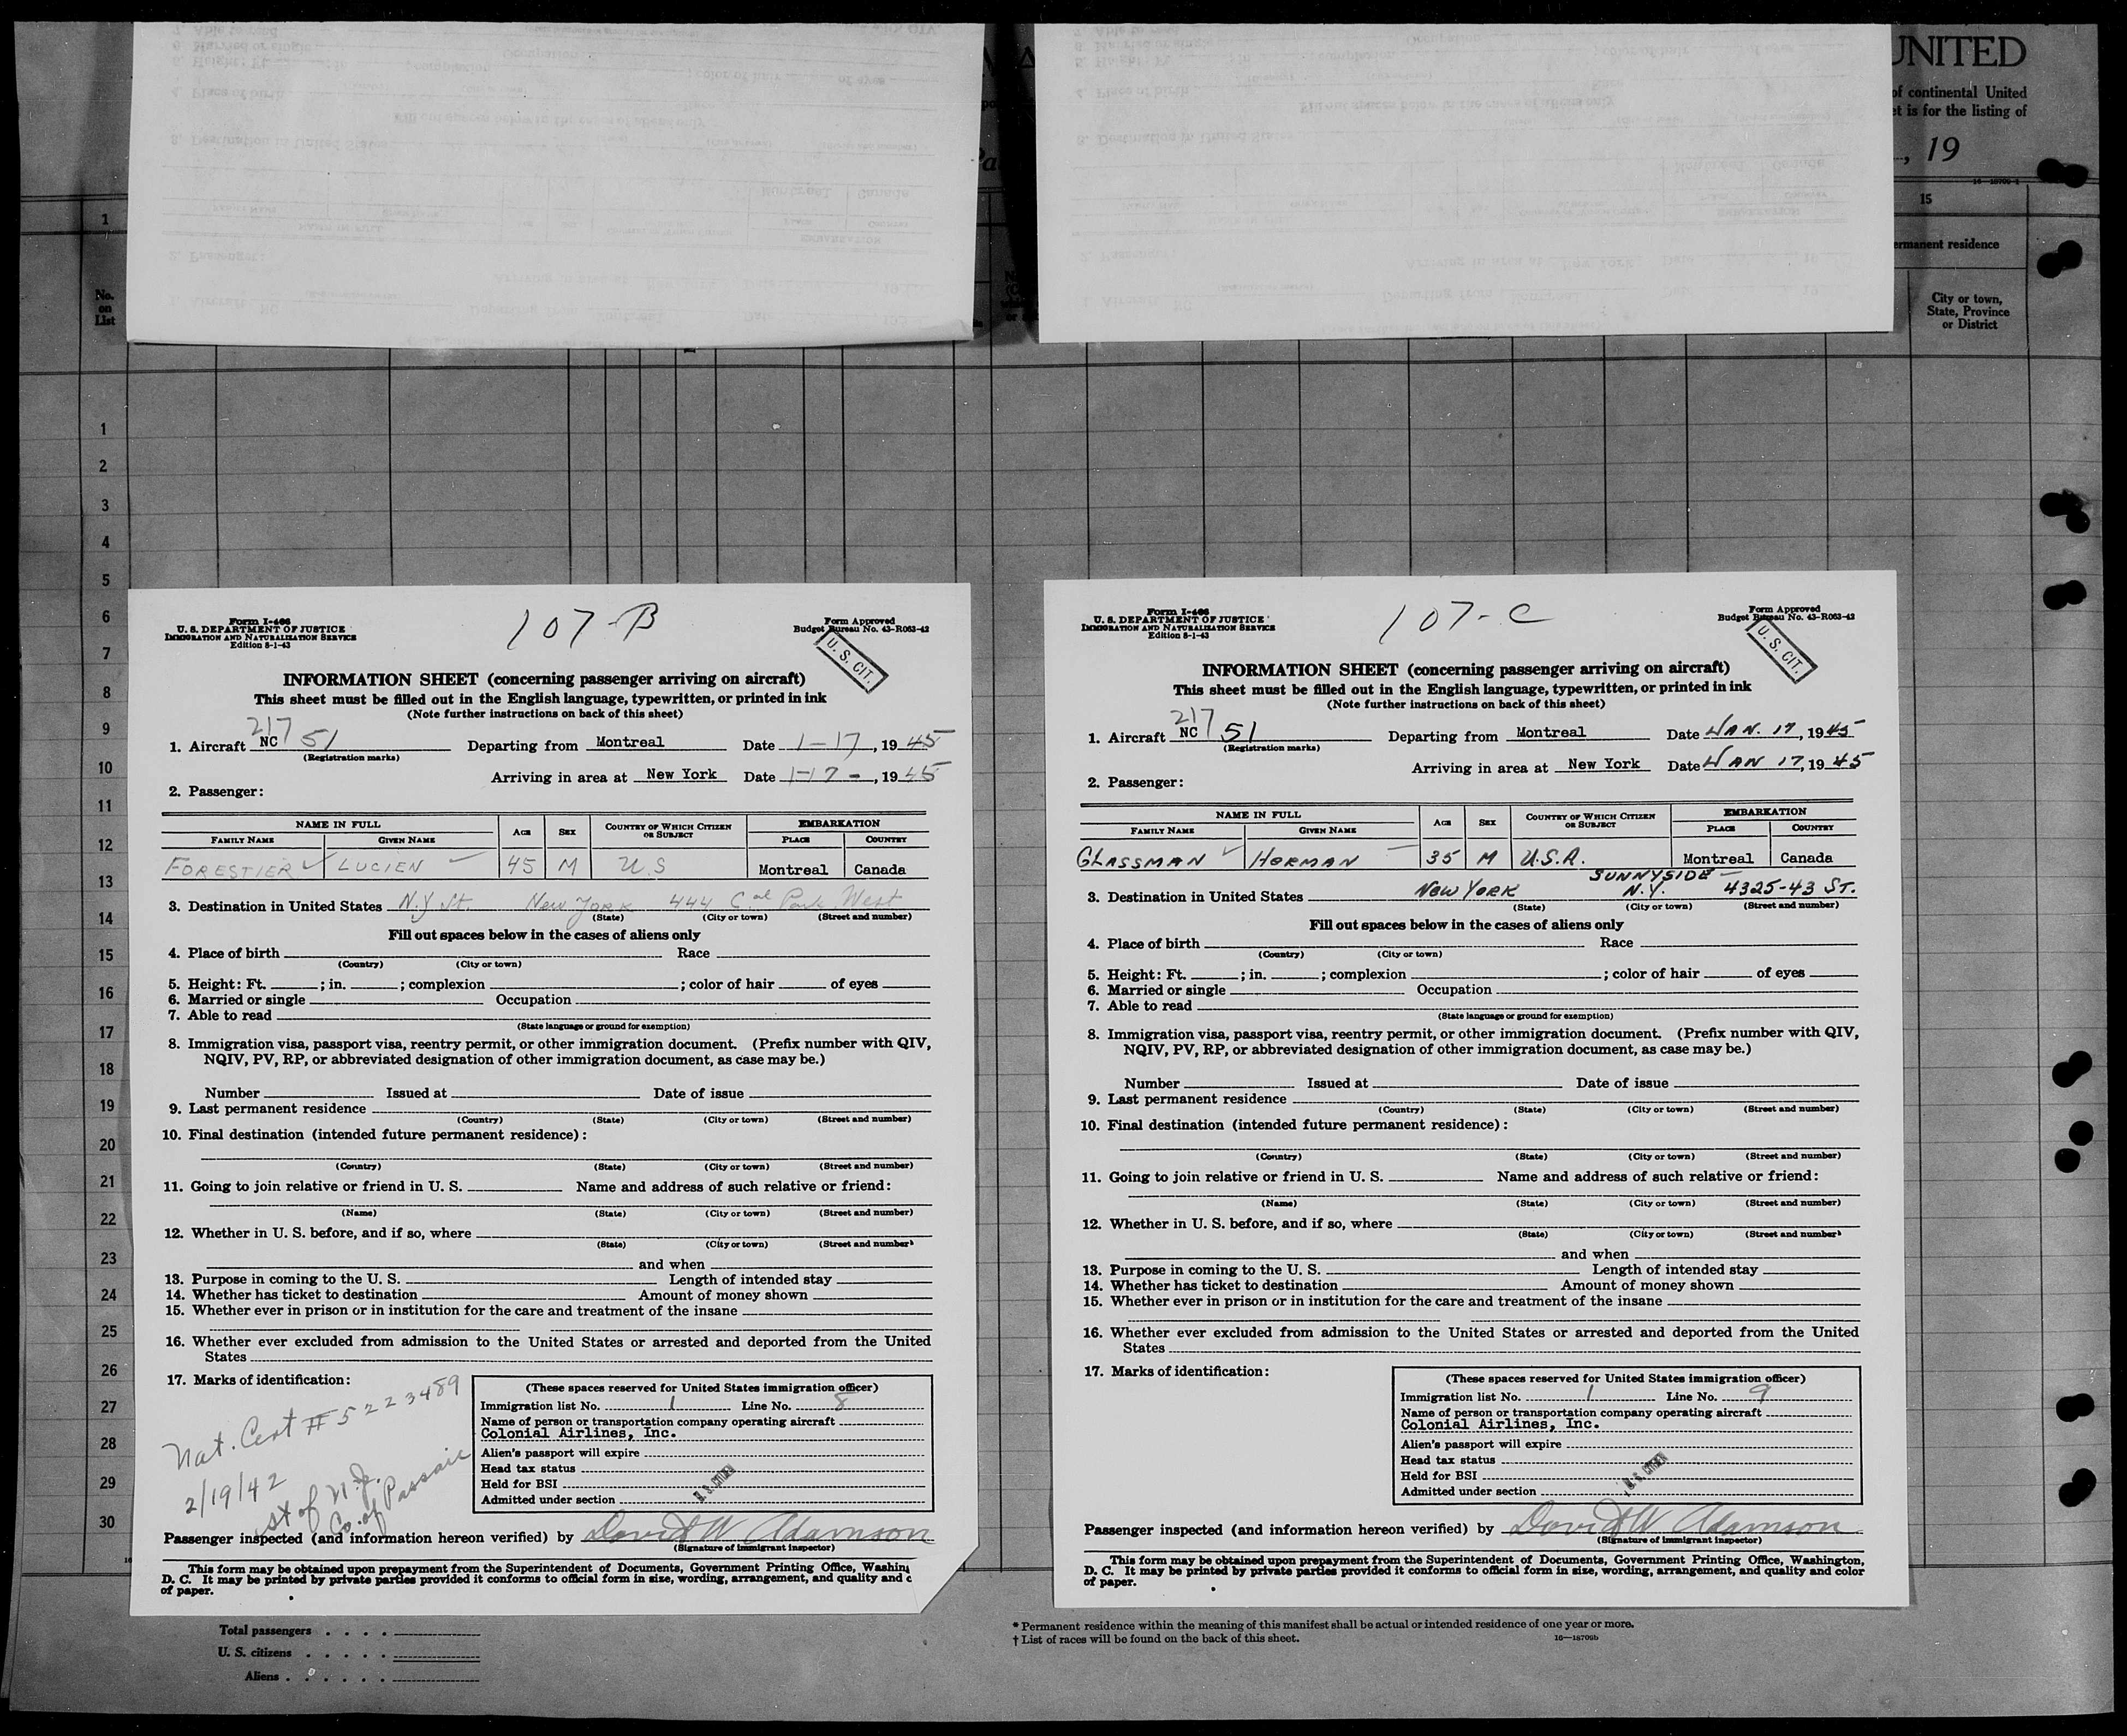 UNITED
of continental United
et is for the listing of
, 19
16—18709-1
15
ermanent residence
City or town,
State, Province
or District
1
No.
on
List
1
2
3
4
5
6
7
8
9
10
11
12
13
14
15
16
17
18
19
20
21
22
23
24
25
26
27
28
29
30
Form I-466
U. S. DEPARTMENT OF JUSTICE
IMMIGRATION AND NATURALIZATION SERVICE
Edition 8-1-43
107-B
Form Approved
Budget Bureau No. 43-R063-42
U. S. CIT.
INFORMATION SHEET (concerning passenger arriving on aircraft)
This sheet must be filled out in the English language, typewritten, or printed in ink
(Note further instructions on back of this sheet)
217
1. Aircraft NC 51 Departing from Montreal Date 1-17, 1945
(Registration marks)
Arriving in area at New York Date 1-17-, 1945
2. Passenger:
NAME IN FULL AGE SEX COUNTRY OF WHICH CITIZEN OR SUBJECT EMBARKATION
FAMILY NAME GIVEN NAME PLACE COUNTRY
FORESTIER LUCIEN 45 M U.S Montreal Canada
3. Destination in United States N.Y St. New York 444 Cal Park West
(State) (City or town) (Street and number)
Fill out spaces below in the cases of aliens only
4. Place of birth Race
(Country) (City or town)
5. Height: Ft. ; in. ; complexion ; color of hair of eyes
6. Married or single Occupation
7. Able to read
(State language or ground for exemption)
8. Immigration visa, passport visa, reentry permit, or other immigration document. (Prefix number with QIV,
NQIV, PV, RP, or abbreviated designation of other immigration document, as case may be.)
Number Issued at Date of issue
9. Last permanent residence
(Country) (State) (City or town) (Street and number)
10. Final destination (intended future permanent residence):
(Country) (State) (City or town) (Street and number)
11. Going to join relative or friend in U. S. Name and address of such relative or friend:
(Name) (State) (City or town) (Street and number)
12. Whether in U. S. before, and if so, where
(State) (City or town) (Street and number)
and when
13. Purpose in coming to the U. S. Length of intended stay
14. Whether has ticket to destination Amount of money shown
15. Whether ever in prison or in institution for the care and treatment of the insane
16. Whether ever excluded from admission to the United States or arrested and deported from the United
States
17. Marks of identification:
Nat. Cert # 5223489
2/19/42
st of N.J.
Co. of Passaic
(These spaces reserved for United States immigration officer)
Immigration list No. 1 Line No. 8
Name of person or transportation company operating aircraft
Colonial Airlines, Inc.
Alien's passport will expire
Head tax status
Held for BSI
Admitted under section
U. S. CITIZEN
Passenger inspected (and information hereon verified) by David W Adamson
(Signature of immigrant inspector)
This form may be obtained upon prepayment from the Superintendent of Documents, Government Printing Office, Washing
D. C. It may be printed by private parties provided it conforms to official form in size, wording, arrangement, and quality and c
of paper.
Form I-466
U. S. DEPARTMENT OF JUSTICE
IMMIGRATION AND NATURALIZATION SERVICE
Edition 8-1-43
107-C
Form Approved
Budget Bureau No. 43-R063-42
U. S. CIT.
INFORMATION SHEET (concerning passenger arriving on aircraft)
This sheet must be filled out in the English language, typewritten, or printed in ink
(Note further instructions on back of this sheet)
217
1. Aircraft NC 51 Departing from Montreal Date JAN. 17, 1945
(Registration marks)
Arriving in area at New York Date JAN 17, 1945
2. Passenger:
NAME IN FULL AGE SEX COUNTRY OF WHICH CITIZEN OR SUBJECT EMBARKATION
FAMILY NAME GIVEN NAME PLACE COUNTRY
GLASSMAN HERMAN 35 M U.S.A. Montreal Canada
SUNNYSIDE
3. Destination in United States NEW YORK N.Y. 4325-43 ST.
(State) (City or town) (Street and number)
Fill out spaces below in the cases of aliens only
4. Place of birth Race
(Country) (City or town)
5. Height: Ft. ; in. ; complexion ; color of hair of eyes
6. Married or single Occupation
7. Able to read
(State language or ground for exemption)
8. Immigration visa, passport visa, reentry permit, or other immigration document. (Prefix number with QIV,
NQIV, PV, RP, or abbreviated designation of other immigration document, as case may be.)
Number Issued at Date of issue
9. Last permanent residence
(Country) (State) (City or town) (Street and number)
10. Final destination (intended future permanent residence):
(Country) (State) (City or town) (Street and number)
11. Going to join relative or friend in U. S. Name and address of such relative or friend:
(Name) (State) (City or town) (Street and number)
12. Whether in U. S. before, and if so, where
(State) (City or town) (Street and number)
and when
13. Purpose in coming to the U. S. Length of intended stay
14. Whether has ticket to destination Amount of money shown
15. Whether ever in prison or in institution for the care and treatment of the insane
16. Whether ever excluded from admission to the United States or arrested and deported from the United
States
17. Marks of identification:
(These spaces reserved for United States immigration officer)
Immigration list No. 1 Line No. 9
Name of person or transportation company operating aircraft
Colonial Airlines, Inc.
Alien's passport will expire
Head tax status
Held for BSI
Admitted under section
U. S. CITIZEN
Passenger inspected (and information hereon verified) by David W Adamson
(Signature of immigrant inspector)
This form may be obtained upon prepayment from the Superintendent of Documents, Government Printing Office, Washington,
D. C. It may be printed by private parties provided it conforms to official form in size, wording, arrangement, and quality and color
of paper.
Total passengers
U. S. citizens
Aliens
* Permanent residence within the meaning of this manifest shall be actual or intended residence of one year or more.
† List of races will be found on the back of this sheet.
16—18709b